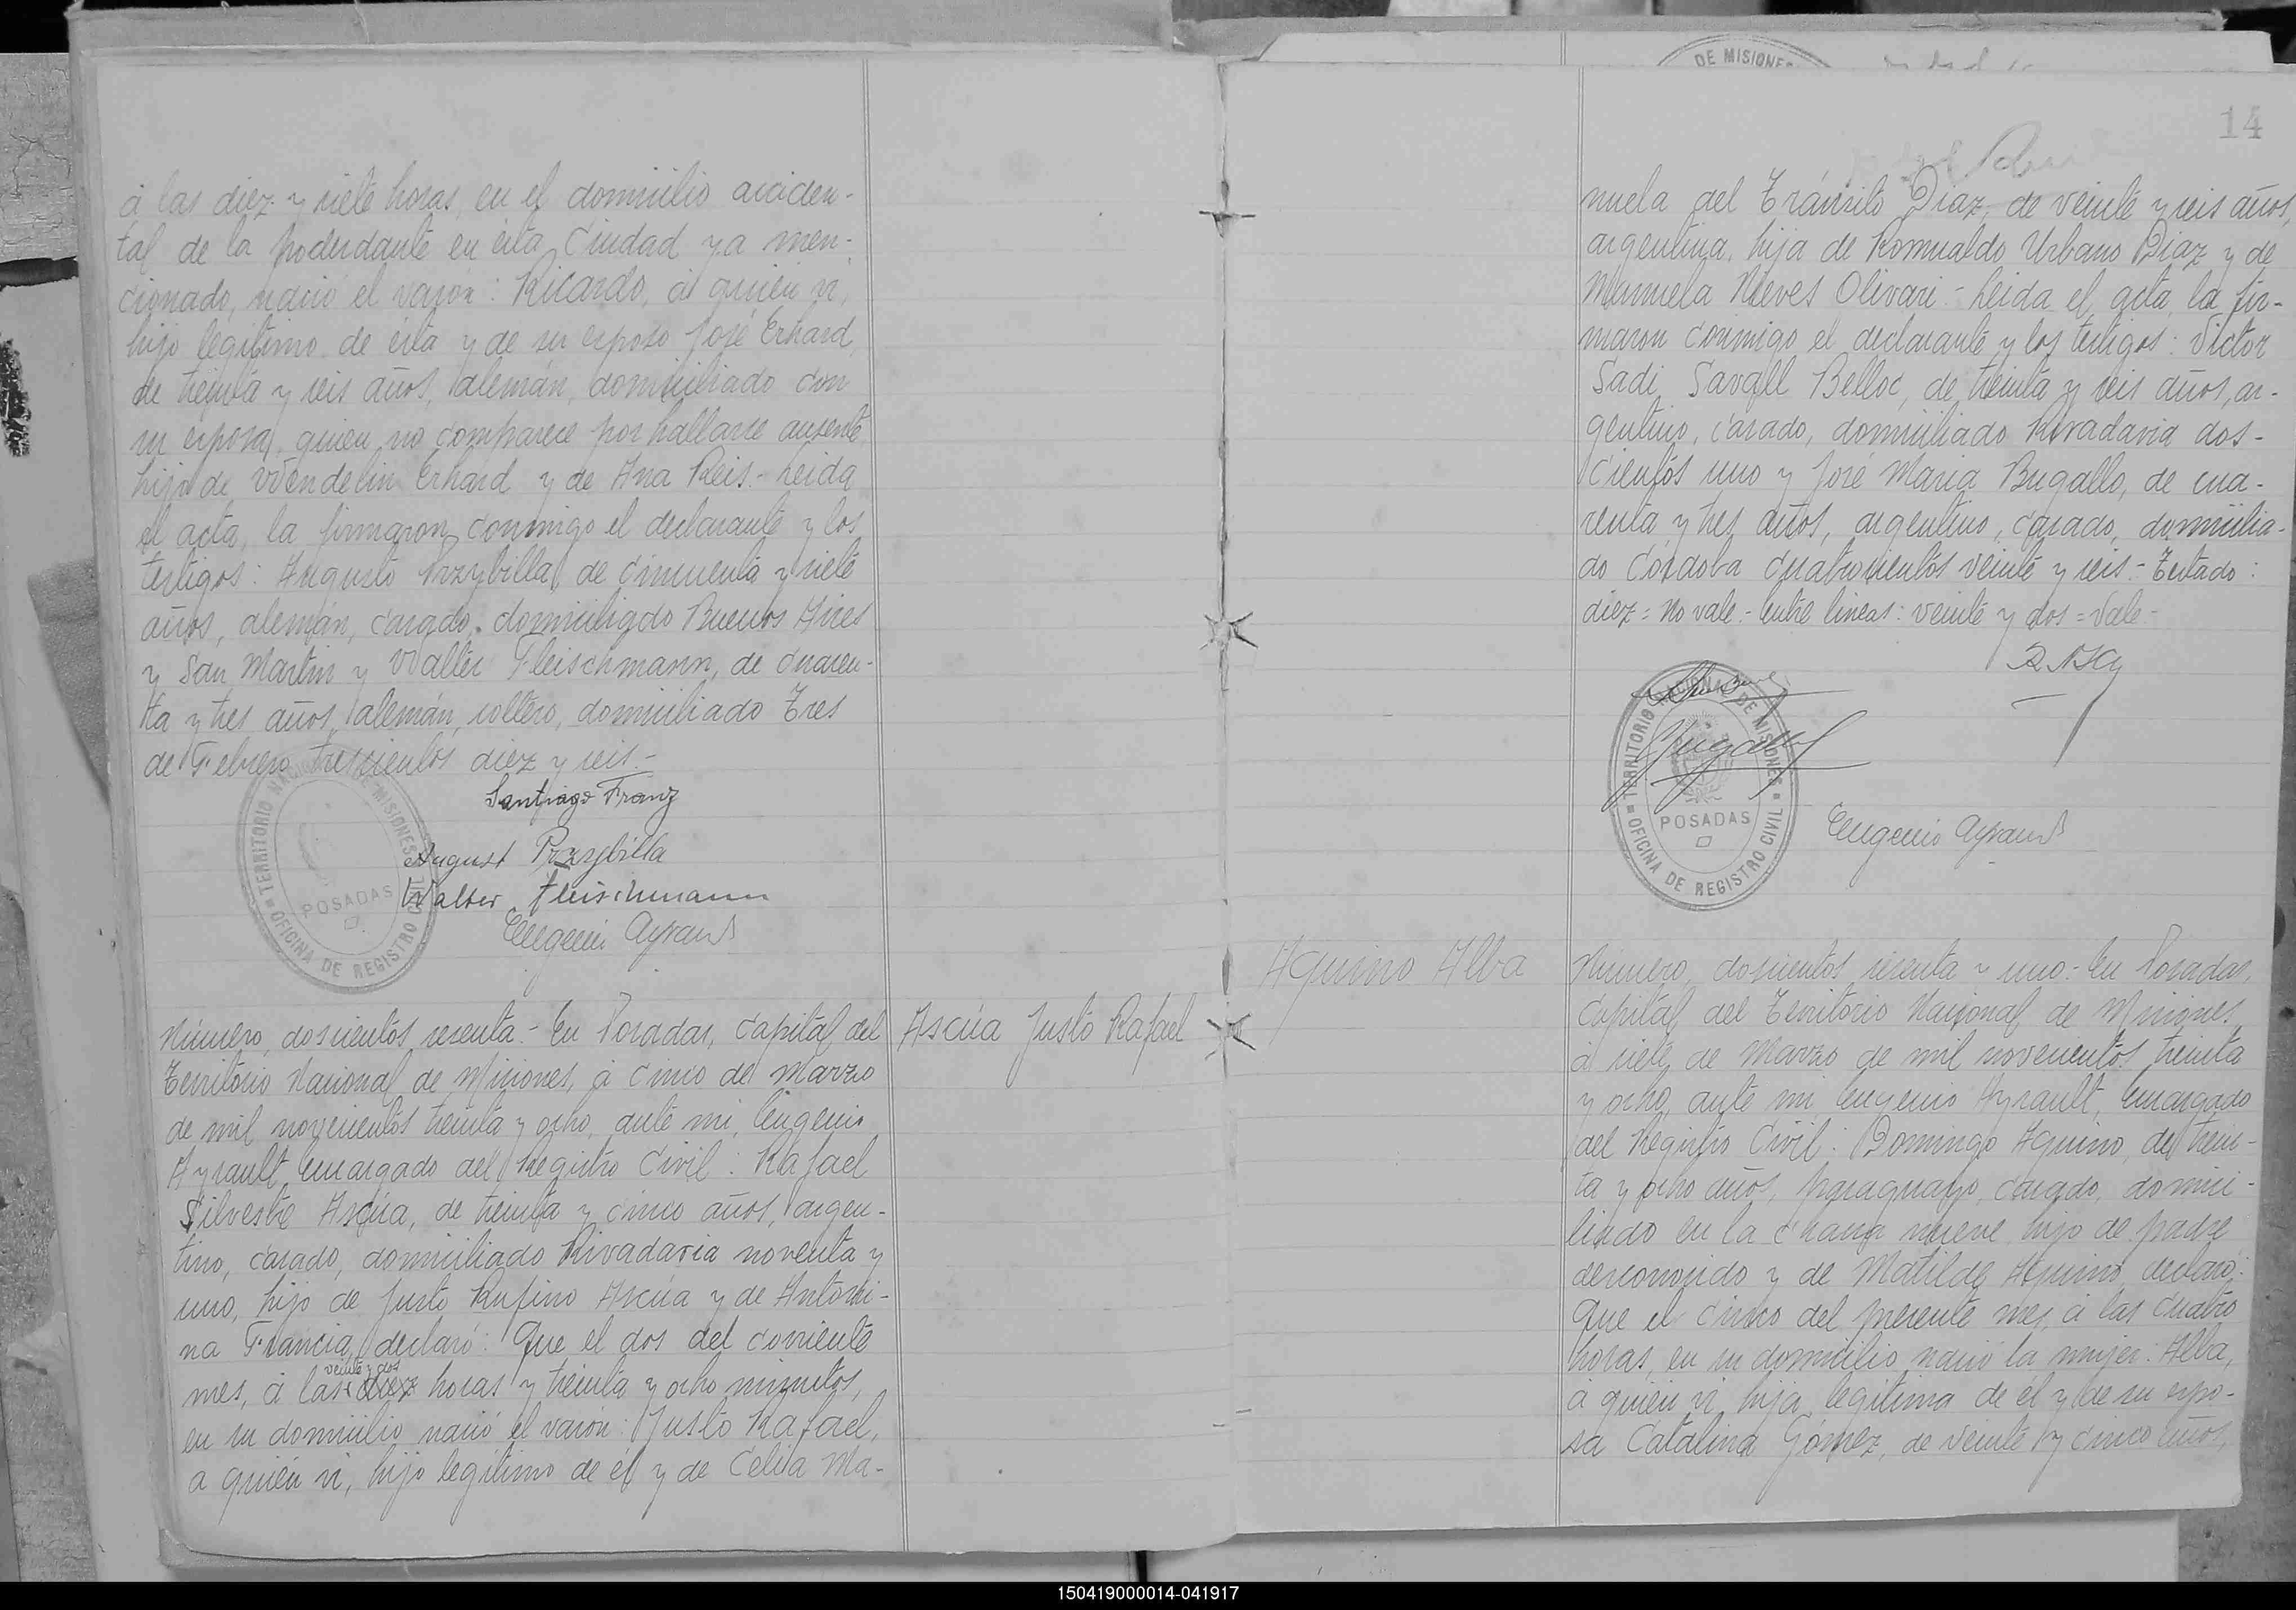 á las diez y siete horas, en el domicilio acciden-
tal de la poderdante en esta Ciudad ya men-
cionado, nació el varón: Ricardo, á quien vi,
hijo legítimo de esta y de su esposo José Erhard,
de treinta y seis años, alemán, domiciliado con
su esposa, quien no comparece por hallarse ausente
hijo de Wendelin Erhard y de Ana Reis.- Leida
el acta, la firmaron conmigo el declarante y los
testigos: Augusto Przybilla, de cincuenta y siete
años, alemán, casado, domiciliado Buenos Aires
y San Martín y Walter Fleischmann, de cuaren-
ta y tres años, alemán, soltero, domiciliado Tres
de Febrero trescientos diez y seis.-
Santiago Franz
August Przybilla
Walter Fleischmann
Eugenio Ayrault
TERRITORIO NACIONAL DE MISIONES
POSADAS
OFICINA DE REGISTRO CIVIL
Número doscientos sesenta.- En Posadas, Capital del
Territorio Nacional de Misiones, á cinco de Marzo
de mil novecientos treinta y ocho, ante mi, Eugenio
Ayrault, Encargado del Registro Civil: Rafael
Silvestre Ascúa, de treinta y cinco años, argen-
tino, casado, domiciliado Rivadavia noventa y
uno, hijo de Justo Rufino Ascúa y de Antoni-
na Francia, declaró: Que el dos del corriente
veinte y dos
mes, á las diez horas y treinta y ocho minutos,
en su domicilio nació el varón: Justo Rafael,
a quién vi, hijo legítimo de él y de Celia Ma-
Ascúa Justo Rafael
DE MISIONES
14
nuela del Tránsito Diaz, de veinte y seis años,
argentina, hija de Romualdo Urbano Diaz y de
Manuela Nieves Olivari.- Leida el acta, la fir-
maron conmigo el declarante y los testigos: Victor
Sadi Savall Belloc, de treinta y seis años, ar-
gentino, casado, domiciliado Rivadavia dos-
cientos uno y José Maria Bugallo, de cua-
renta y tres años, argentino, casado, domicilia-
do Córdoba cuatrocientos veinte y seis.- Testado:
diez = No vale.- Entre lineas: veinte y dos = Vale.-
TERRITORIO NACIONAL DE MISIONES
POSADAS
OFICINA DE REGISTRO CIVIL
Eugenio Ayrault
Aquino Alba
Número doscientos sesenta y uno.- En Posadas,
Capital del Territorio Nacional de Misiones,
á siete de Marzo de mil novecientos treinta
y ocho, ante mi Eugenio Ayrault, Encargado
del Registro Civil: Domingo Aquino, de trein-
ta y ocho años, paraguayo, casado, domici-
liado en la chacra nueve, hijo de padre
desconocido y de Matilde Aquino, declaró:
Que el cinco del presente mes, á las cuatro
horas, en su domicilio nació la mujer: Alba,
á quien vi, hija legítima de él y de su espo-
sa Catalina Gómez, de veinte y cinco años,
150419000014-041917